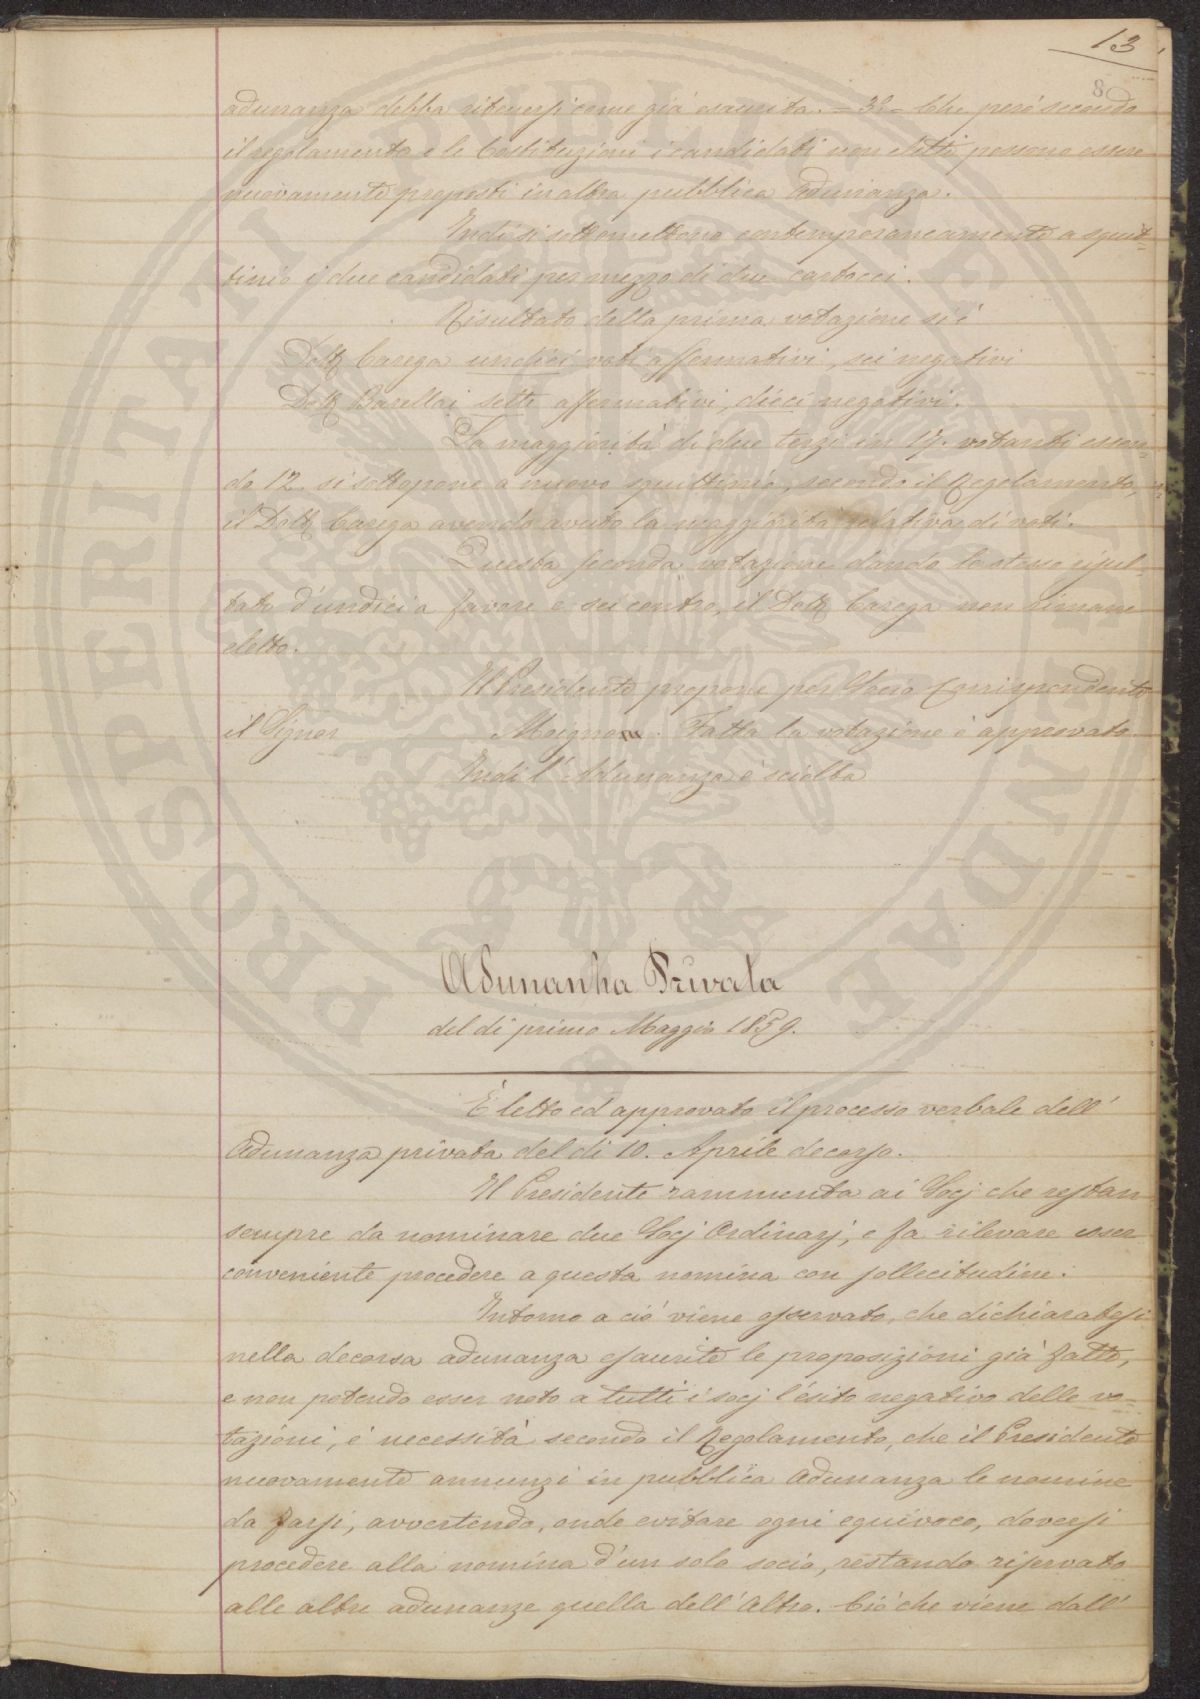 13
8
adunanza debba ritenersi come già esaurita. — 3º — Che però secondo
il regolamento e le Costituzioni i candidati non eletti possono essere
nuovamente proposti in altra pubblica adunanza.
Indi si sottomettono contemporaneamente a squit-
tinio i due candidati per mezzo di due cartocci.
Risultato della prima votazione si è
Dott Carega undici voti affermativi, sei negativi
Dott Barellai sette affermativi, dieci negativi.
La maggiorità di due terzi in 17. votanti essen-
do 12 si sottopone a nuovo squittinio, secondo il Regolamento,
il Dott Carega avendo avuto la maggiorità relativa di voti.
Questa seconda votazione dando lo stesso risul-
tato d'undici a favore e sei contro, il Dott Carega non rimane
eletto.
Il Presidente propone per Socio Corrispondente
il Signor Moignon. Fatta la votazione è approvato.
Indi l'Adunanza è sciolta
Adunanza Privata
del di primo Maggio 1859.
È letto ed approvato il processo verbale dell'
Adunanza privata del di 10. Aprile decorso.
Il Presidente rammenta ai Socj che restan
sempre da nominare due Socj Ordinarj, e fa rilevare esser
conveniente procedere a questa nomina con sollecitudine.
Intorno a ciò viene osservato, che dichiaratesi
nella decorsa adunanza esaurite le proposizioni già fatte,
e non potendo esser noto a tutti i socj l'esito negativo delle vo-
tazioni, è necessità secondo il Regolamento, che il Presidente
nuovamente annunzi in pubblica adunanza le nomine
da farsi, avvertendo, onde evitare ogni equivoco, doversi
procedere alla nomina d'un solo socio, restando riservato
alle altre adunanze quella dell'altro. Ciò che viene dall'
PROSPERITATI PUBLICAE AUGENDAE